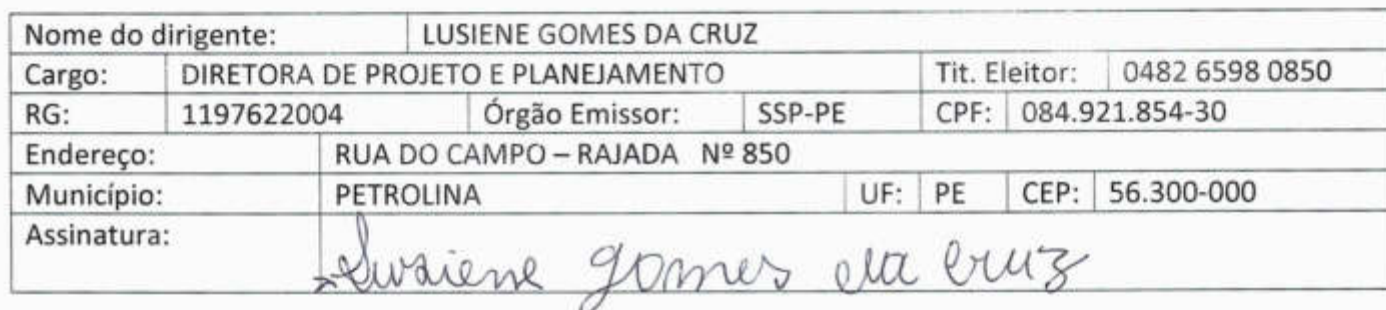 Nome do dirigente: LUSIENE GOMES DA CRUZ
Cargo: DIRETORA DE PROJETO E PLANEJAMENTO Tit. Eleitor: 0482 6598 0850
RG: 1197622004 Órgão Emissor: SSP-PE CPF: 084.921.854-30
Endereço: RUA DO CAMPO – RAJADA Nº 850
Município: PETROLINA UF: PE CEP: 56.300-000
Assinatura: Lusiene gomes da cruz